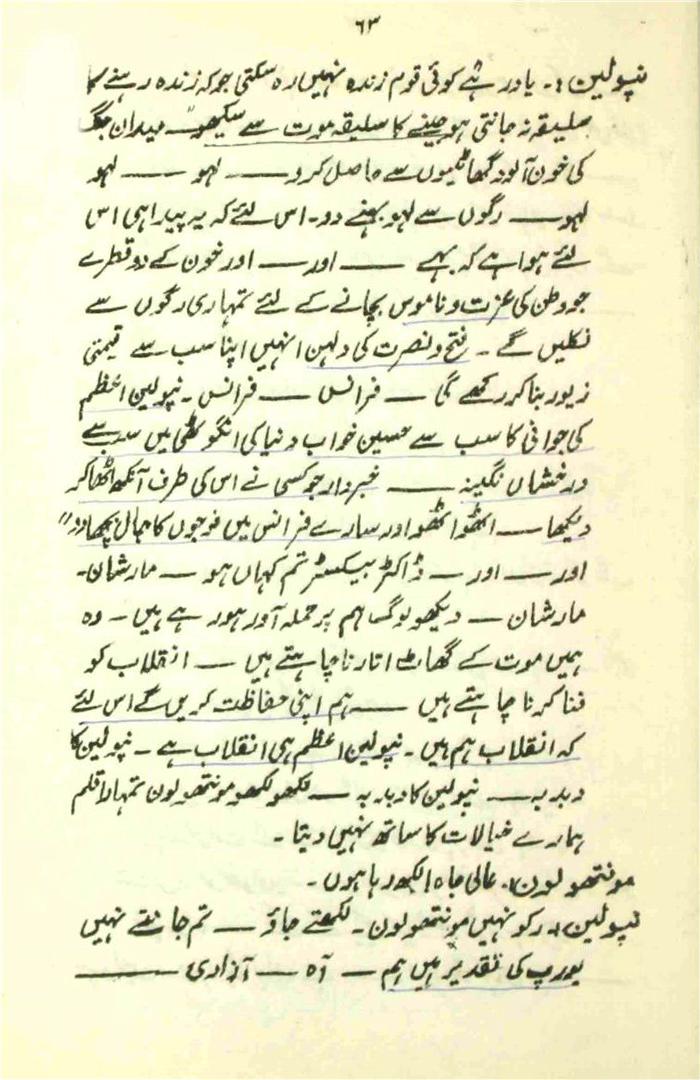 ۶۳
نپولین:۔ یاد رہے کوئی قوم زندہ نہیں رہ سکتی جو کہ زندہ رہنے کا
سلیقہ نہ جانتی ہو جینے کا سلیقہ موت سے سیکھو۔ میدان جنگ
کی خون آلود گھاٹیوں سے حاصل کرو ـــ لہو ـــ لہو
لہو ـــ رگوں سے لہو بہنے دو۔ اس لئے کہ یہ پیدا ہی اس
لئے ہوا ہے کہ بہے ـــ اور ـــ اور خون کے دو قطرے
جو وطن کی عزت و ناموس بچانے کے لئے تمہاری رگوں سے
نکلیں گے ۔ فتح و نصرت کی دلہن انہیں اپنا سب سے قیمتی
زیور بنا کر رکھے گی ـــ فرانس ـــ فرانس ۔ نپولین اعظم
کی جوانی کا سب سے حسین خواب دنیا کی انگوٹھی میں سب سے
درخشاں نگینہ ـــ خبردار جو کسی نے اس کی طرف آنکھ اٹھا کر
دیکھا ـــ اٹھو اٹھو اور سارے فرانس میں فوجوں کا جال بچھا دو"
اور ـــ اور ـــ ڈاکٹر بیکسٹر تم کہاں ہو ـــ مارشان۔
مارشان ـــ دیکھو لوگ ہم پر حملہ آور ہو رہے ہیں ۔ وہ
ہمیں موت کے گھاٹ اتارنا چاہتے ہیں ـــ انقلاب کو
فنا کرنا چاہتے ہیں ـــ ہم اپنی حفاظت کریں گے اس لئے
کہ انقلاب ہم ہیں ۔ نپولین اعظم ہی انقلاب ہے ۔ نپولین کا
دبدبہ ـــ نپولین کا دبدبہ ـــ لکھو لکھو مونتھولون تمہارا قلم
ہمارے خیالات کا ساتھ نہیں دیتا ۔
مونتھولون:۔ عالی جاہ لکھ رہا ہوں ۔
نپولین:۔ رکو نہیں مونتھولون ۔ لکھتے جاؤ ـــ تم جانتے نہیں
یورپ کی تقدیر ہیں ہم ـــ آہ ـــ آزادی ـــ